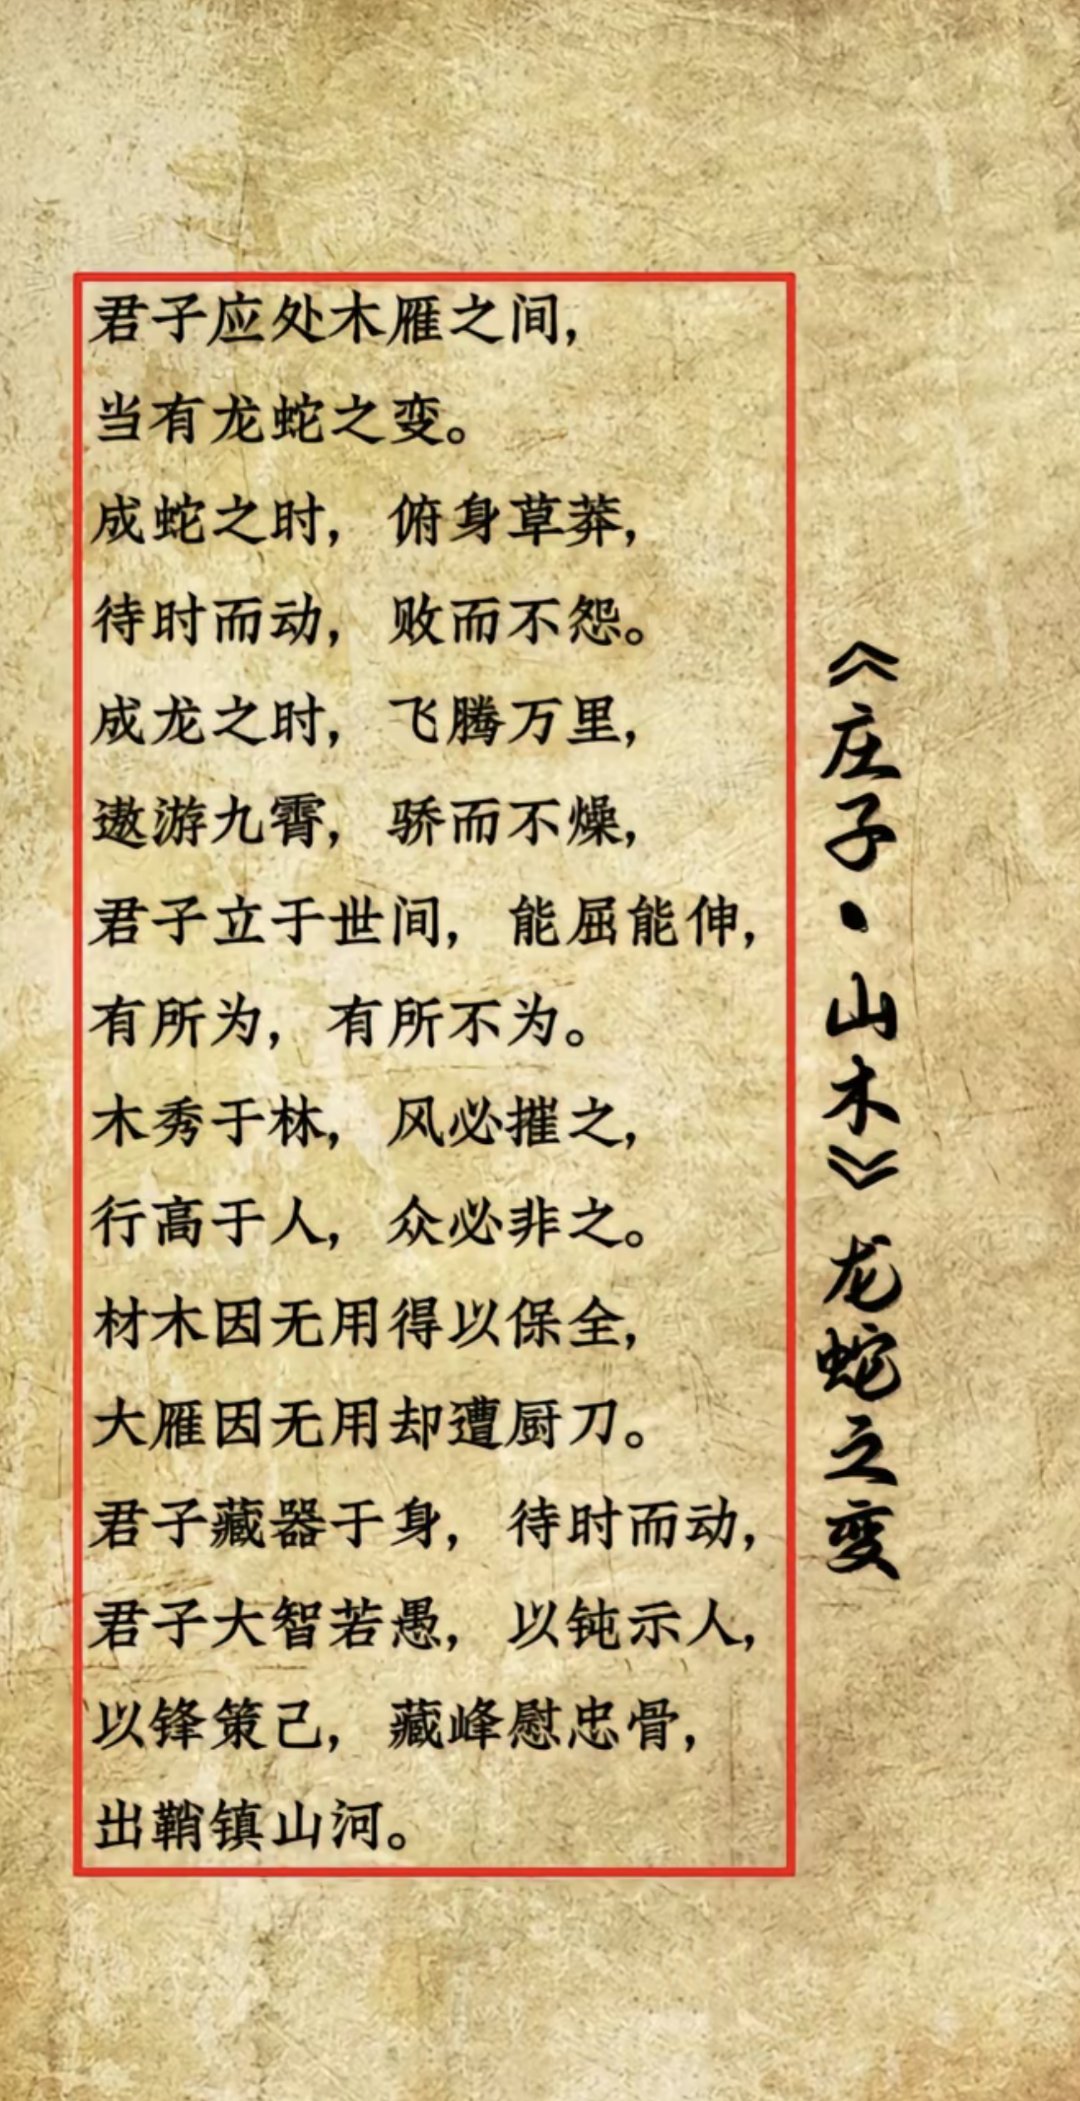 君子应处木雁之间，
当有龙蛇之变。
成蛇之时，俯身草莽，
待时而动，败而不怨。
成龙之时，飞腾万里，
遨游九霄，骄而不燥，
君子立于世间，能屈能伸，
有所为，有所不为。
木秀于林，风必摧之，
行高于人，众必非之。
材木因无用得以保全，
大雁因无用却遭厨刀。
君子藏器于身，待时而动，
君子大智若愚，以钝示人，
以锋策己，藏峰慰忠骨，
出鞘镇山河。
《庄子·山木》龙蛇之变